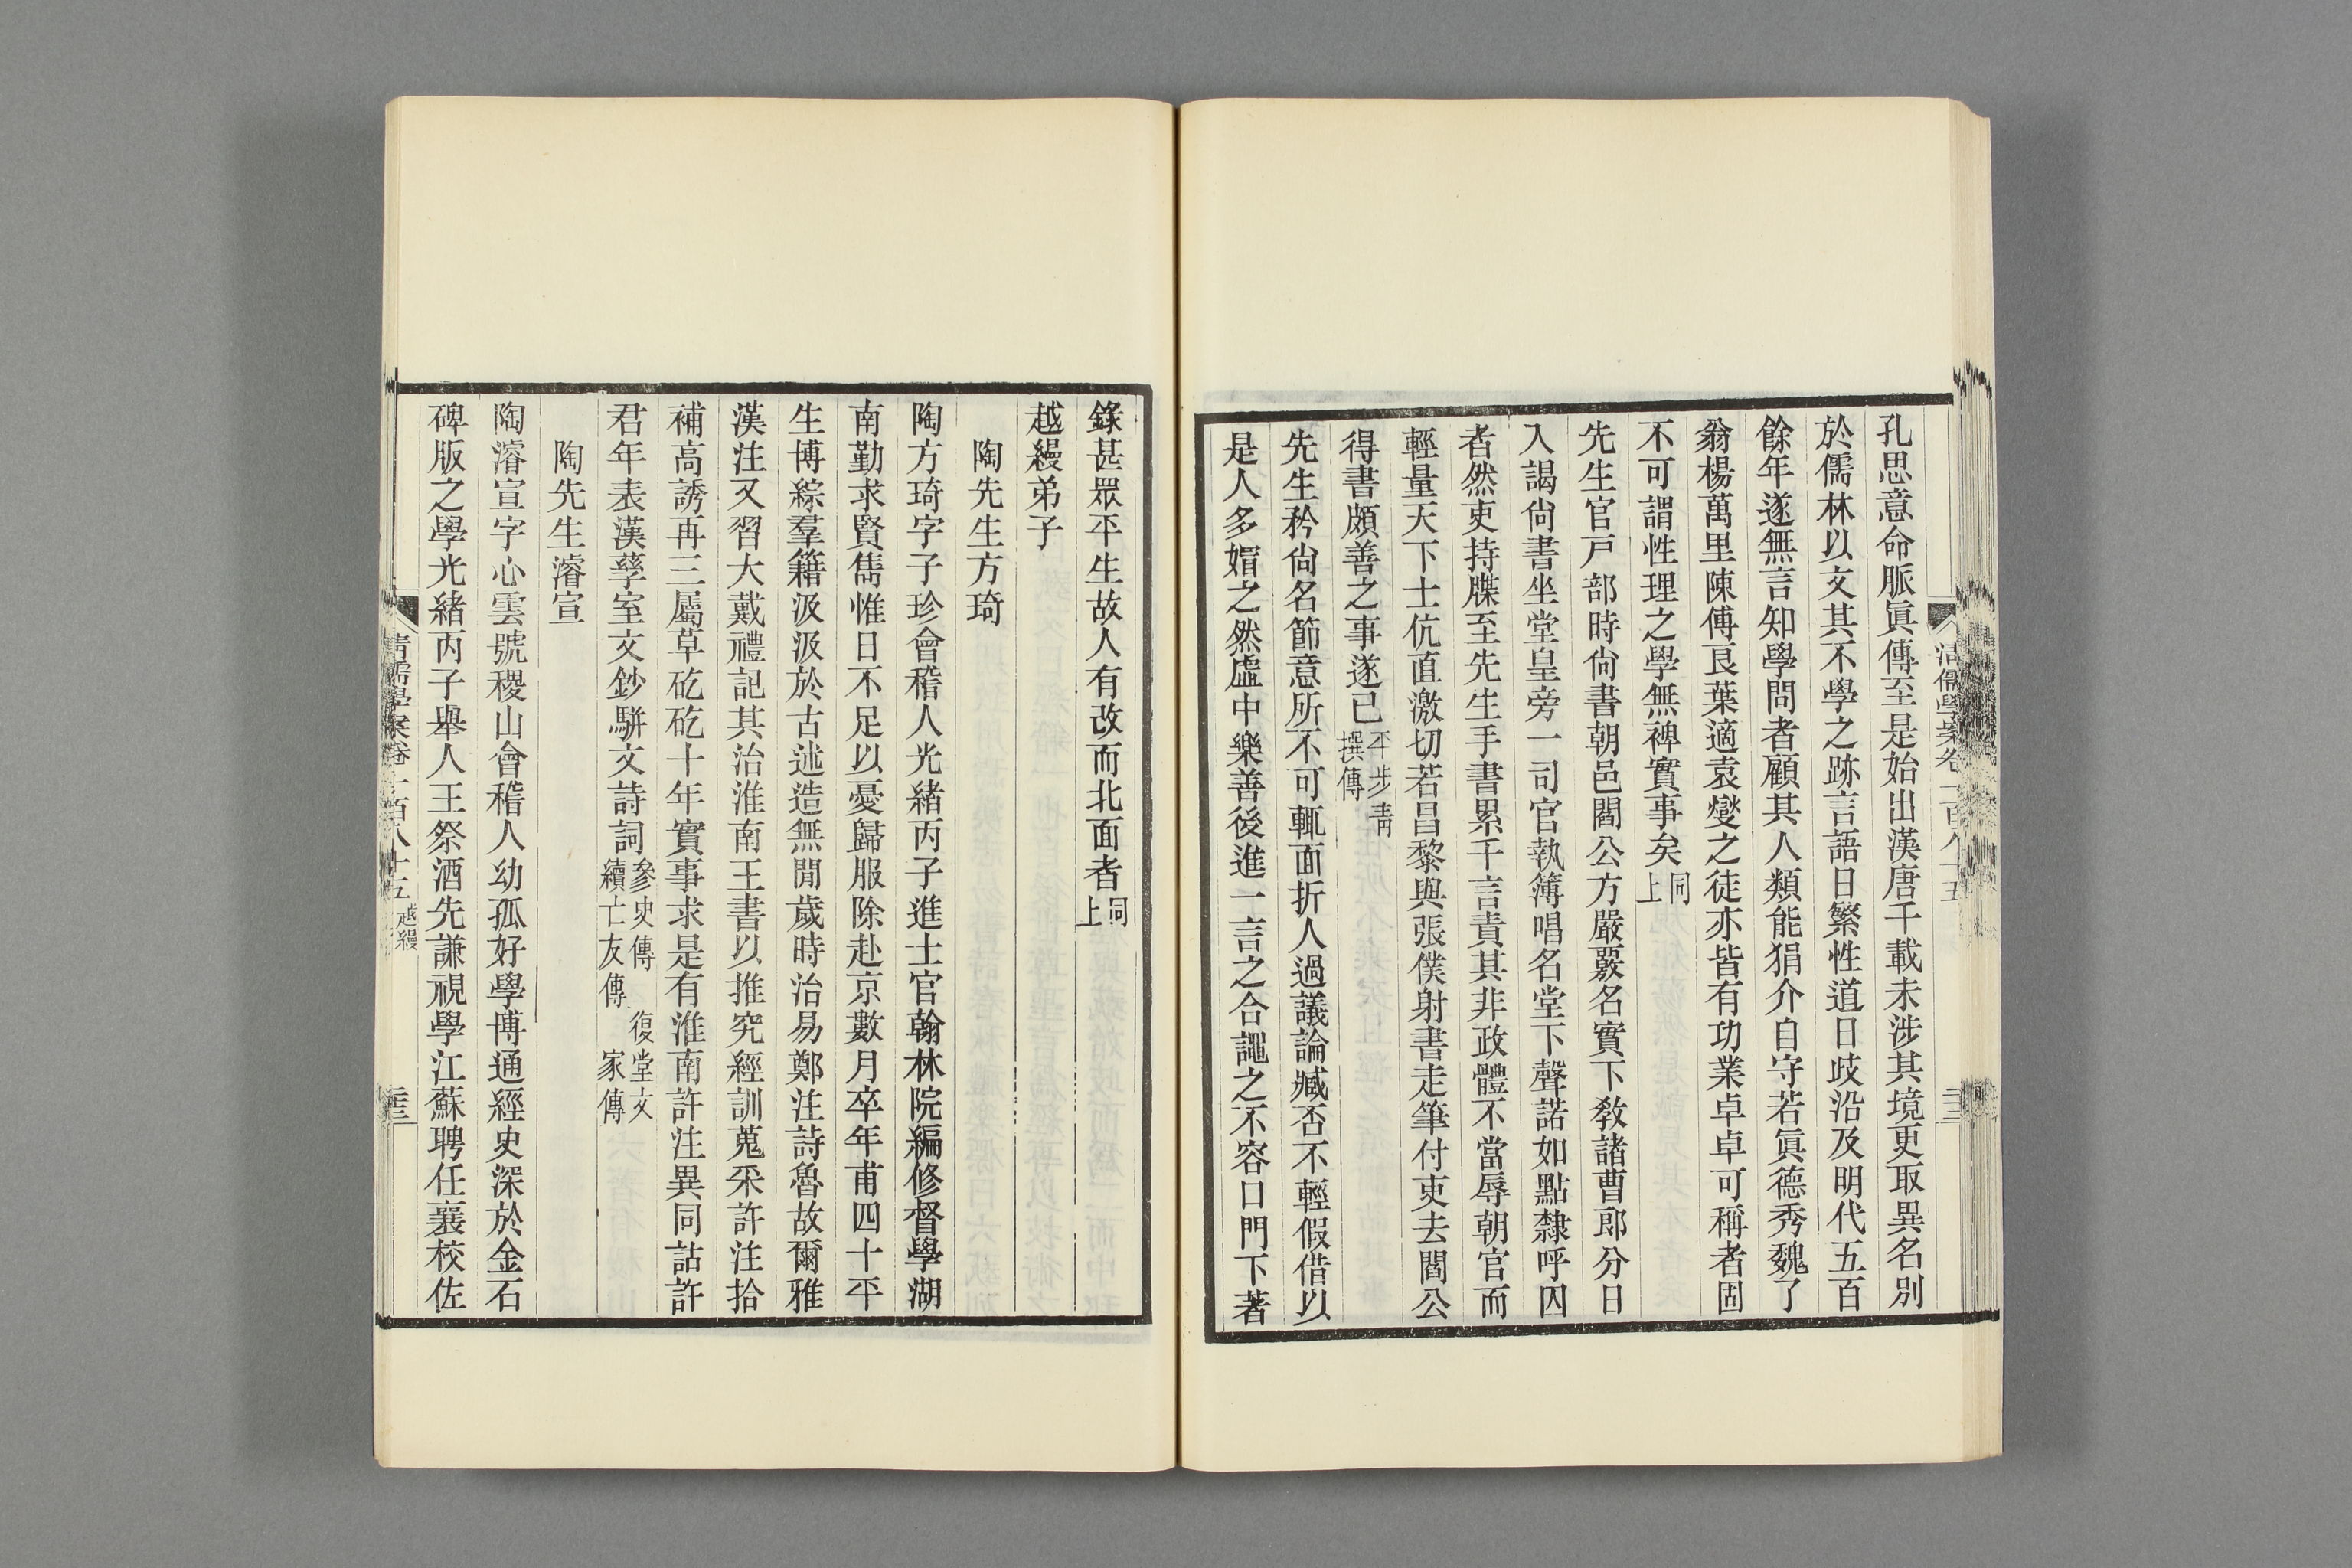 孔思意命脈眞傳至是始出漢唐千載未涉其境更取異名別
於儒林以文其不學之跡言語日繁性道日歧沿及明代五百
餘年遂無言知學問者顧其人類能狷介自守若眞德秀魏了
翁楊萬里陳傅良葉適袁燮之徒亦皆有功業卓卓可稱者固
不可謂性理之學無裨實事矣同上
先生官戸部時尙書朝邑閻公方嚴覈名實下敎諸曹郎分日
入謁尙書坐堂皇旁一司官執簿唱名堂下聲諾如點隸呼囚
者然吏持牒至先生手書累千言責其非政體不當辱朝官而
輕量天下士伉直激切若昌黎與張僕射書走筆付吏去閻公
得書頗善之事遂已平步靑撰傳
先生矜尙名節意所不可輒面折人過議論臧否不輕假借以
是人多媢之然虛中樂善後進一言之合譝之不容口門下著
錄甚眾平生故人有改而北面者同上
越縵弟子
陶先生方琦
陶方琦字子珍會稽人光緒丙子進士官翰林院編修督學湖
南勤求賢雋惟日不足以憂歸服除赴京數月卒年甫四十平
生博綜羣籍汲汲於古述造無閒歲時治易鄭注詩魯故爾雅
漢注又習大戴禮記其治淮南王書以推究經訓蒐采許注拾
補高誘再三屬草矻矻十年實事求是有淮南許注異同詁許
君年表漢孳室文鈔駢文詩詞參史傳 復堂文續亡友傳 家傳
陶先生濬宣
陶濬宣字心雲號稷山會稽人幼孤好學博通經史深於金石
碑版之學光緒丙子舉人王祭酒先謙視學江蘇聘任襄校佐
清儒學案卷一百八十五 越縵